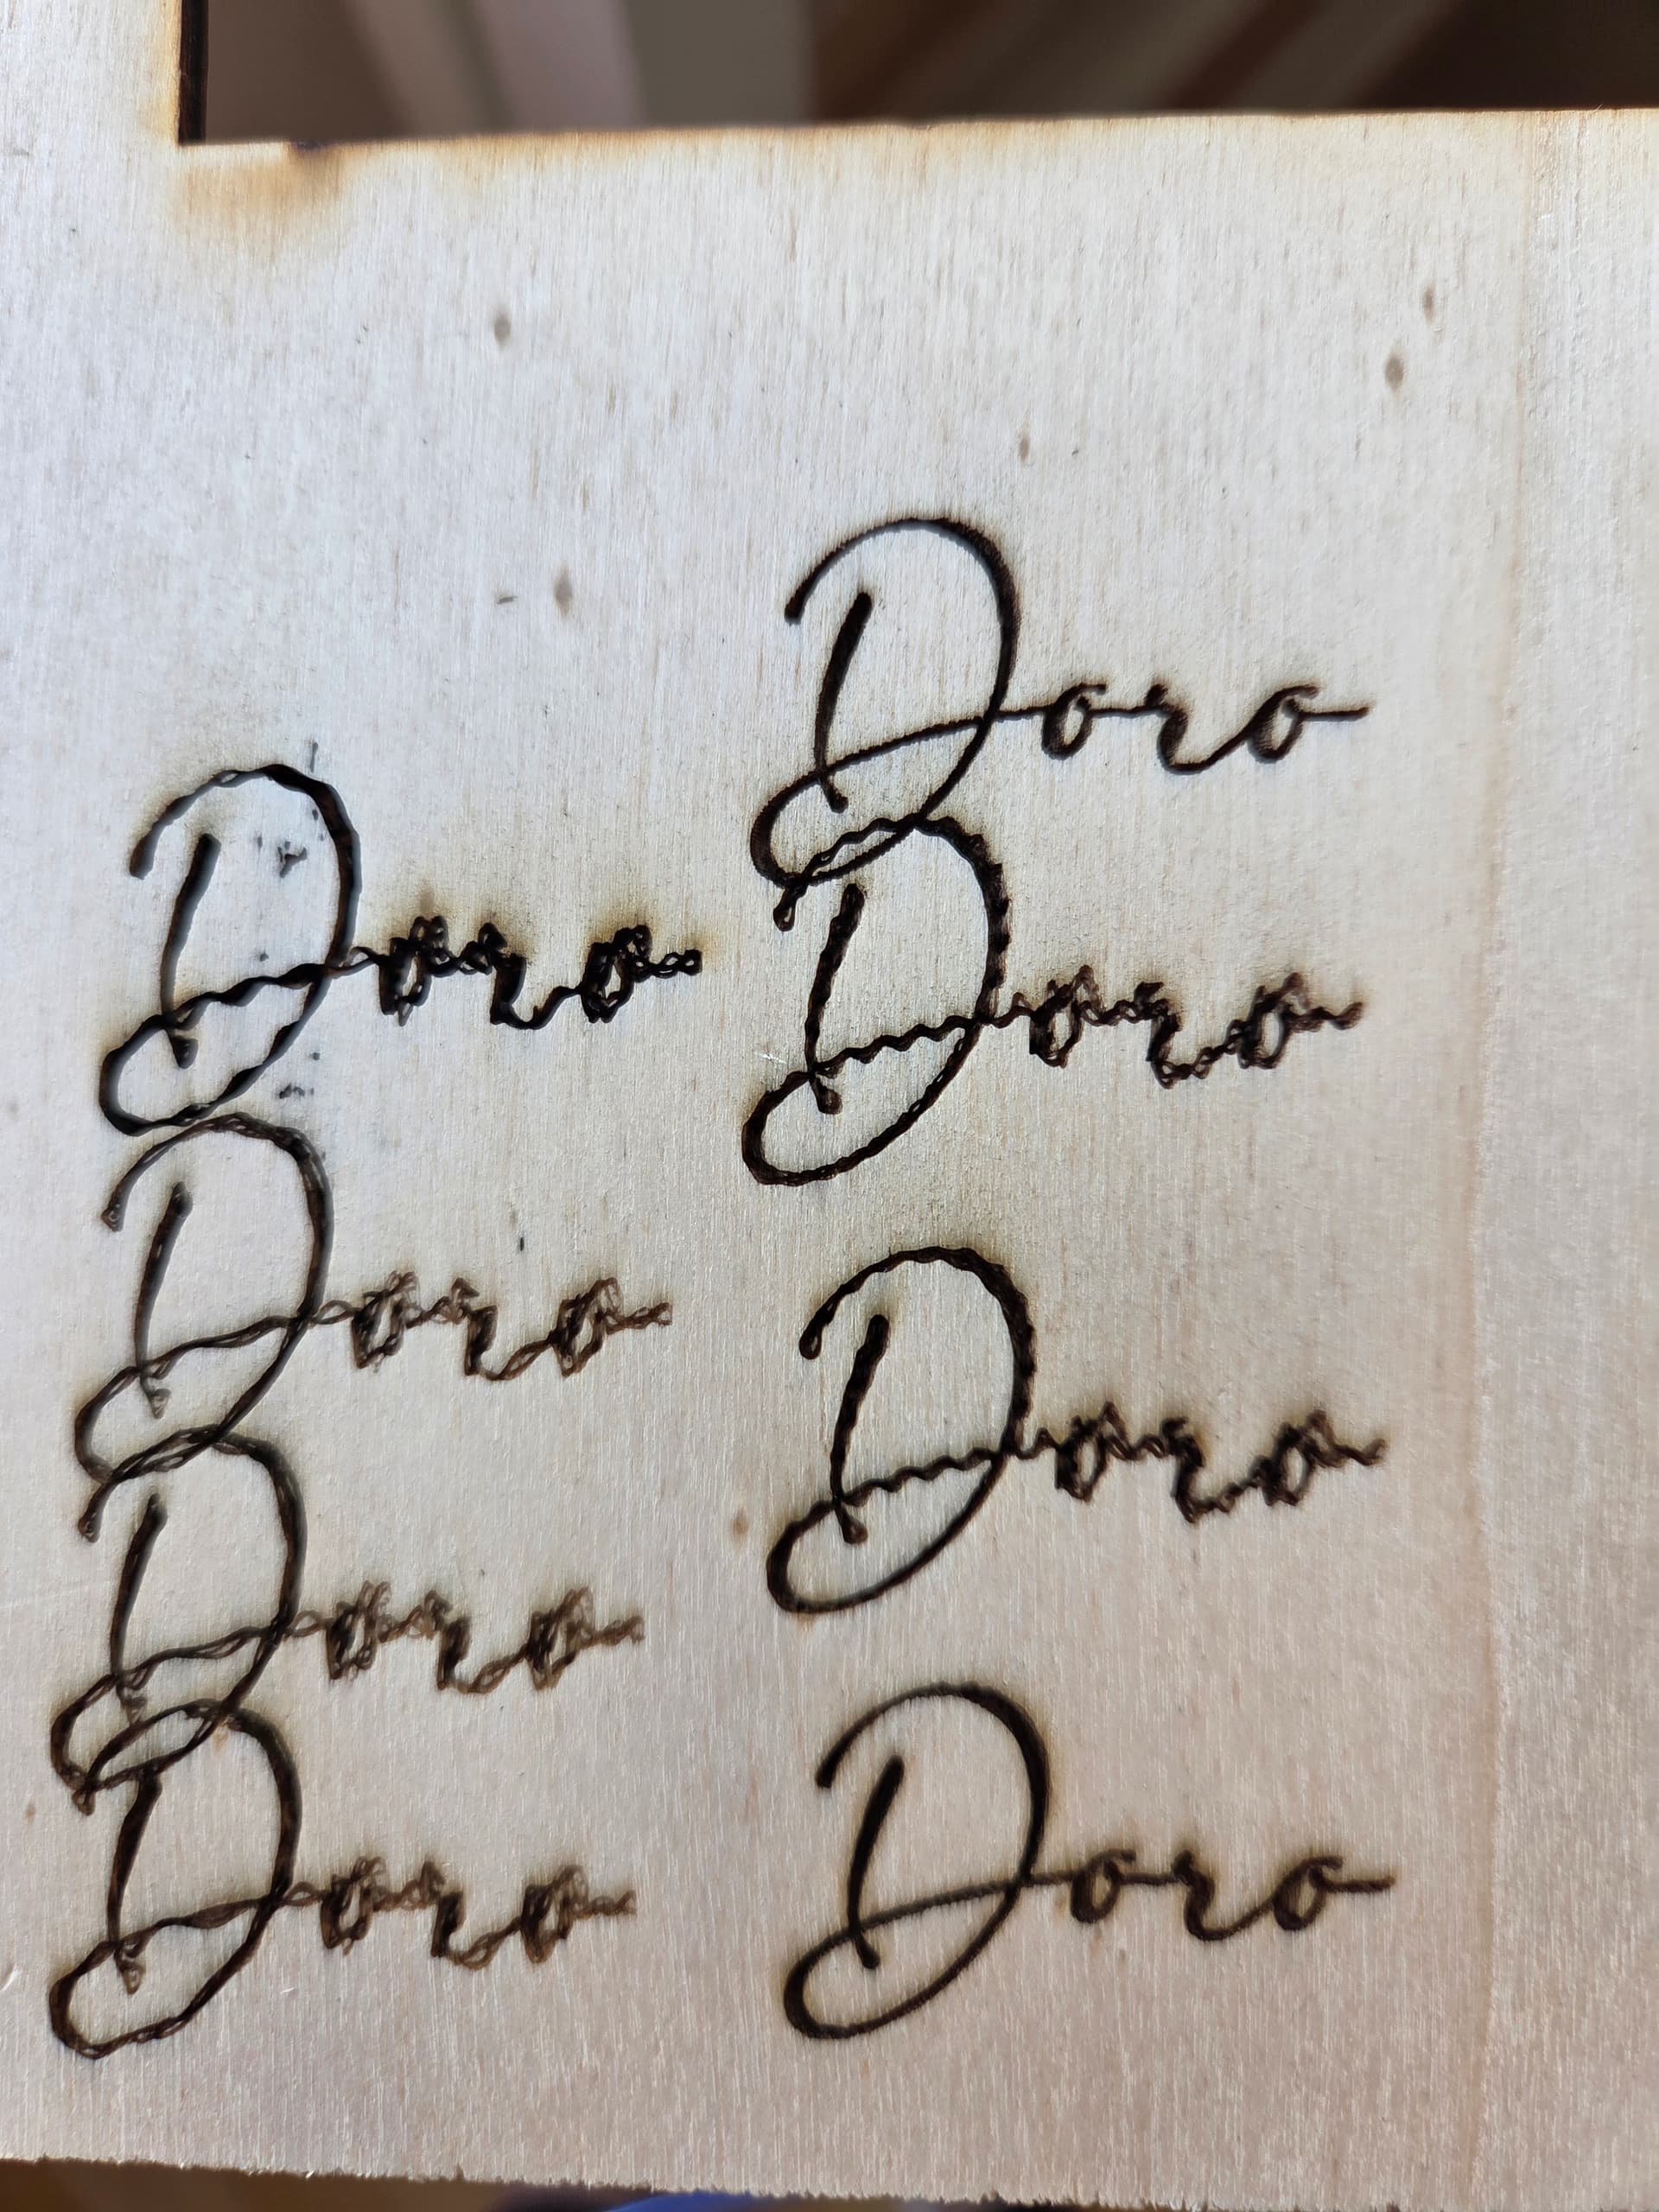 Doro
Doro
Doro
Doro
Doro
Doro
Doro
Doro